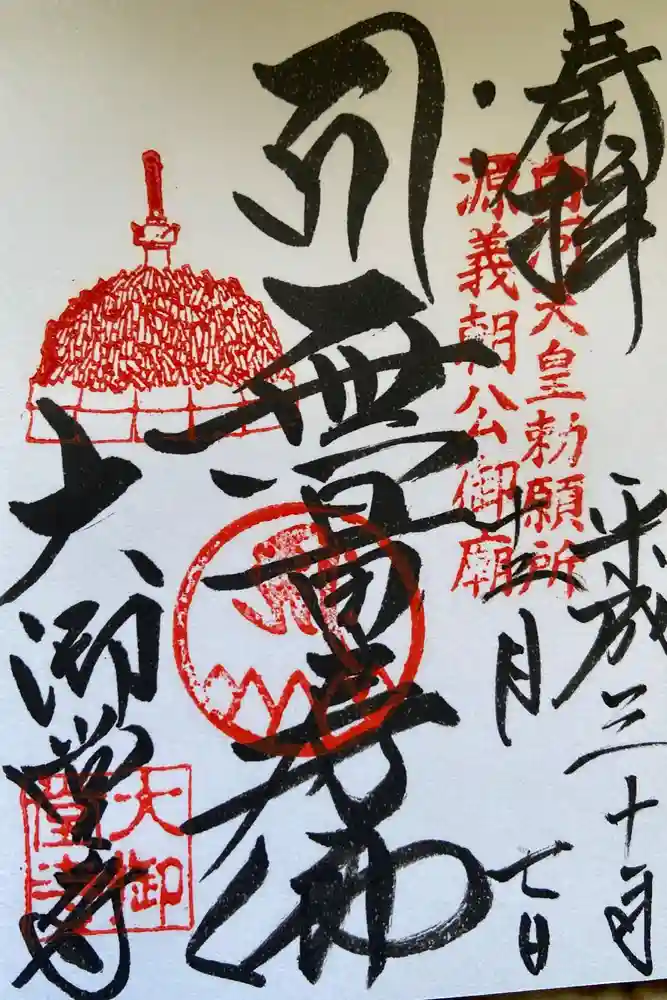 奉拝
白河天皇勅願所
源義朝公御廟
平成三十年
十二月七日
引無量寿佛
大御堂寺
大御
堂寺